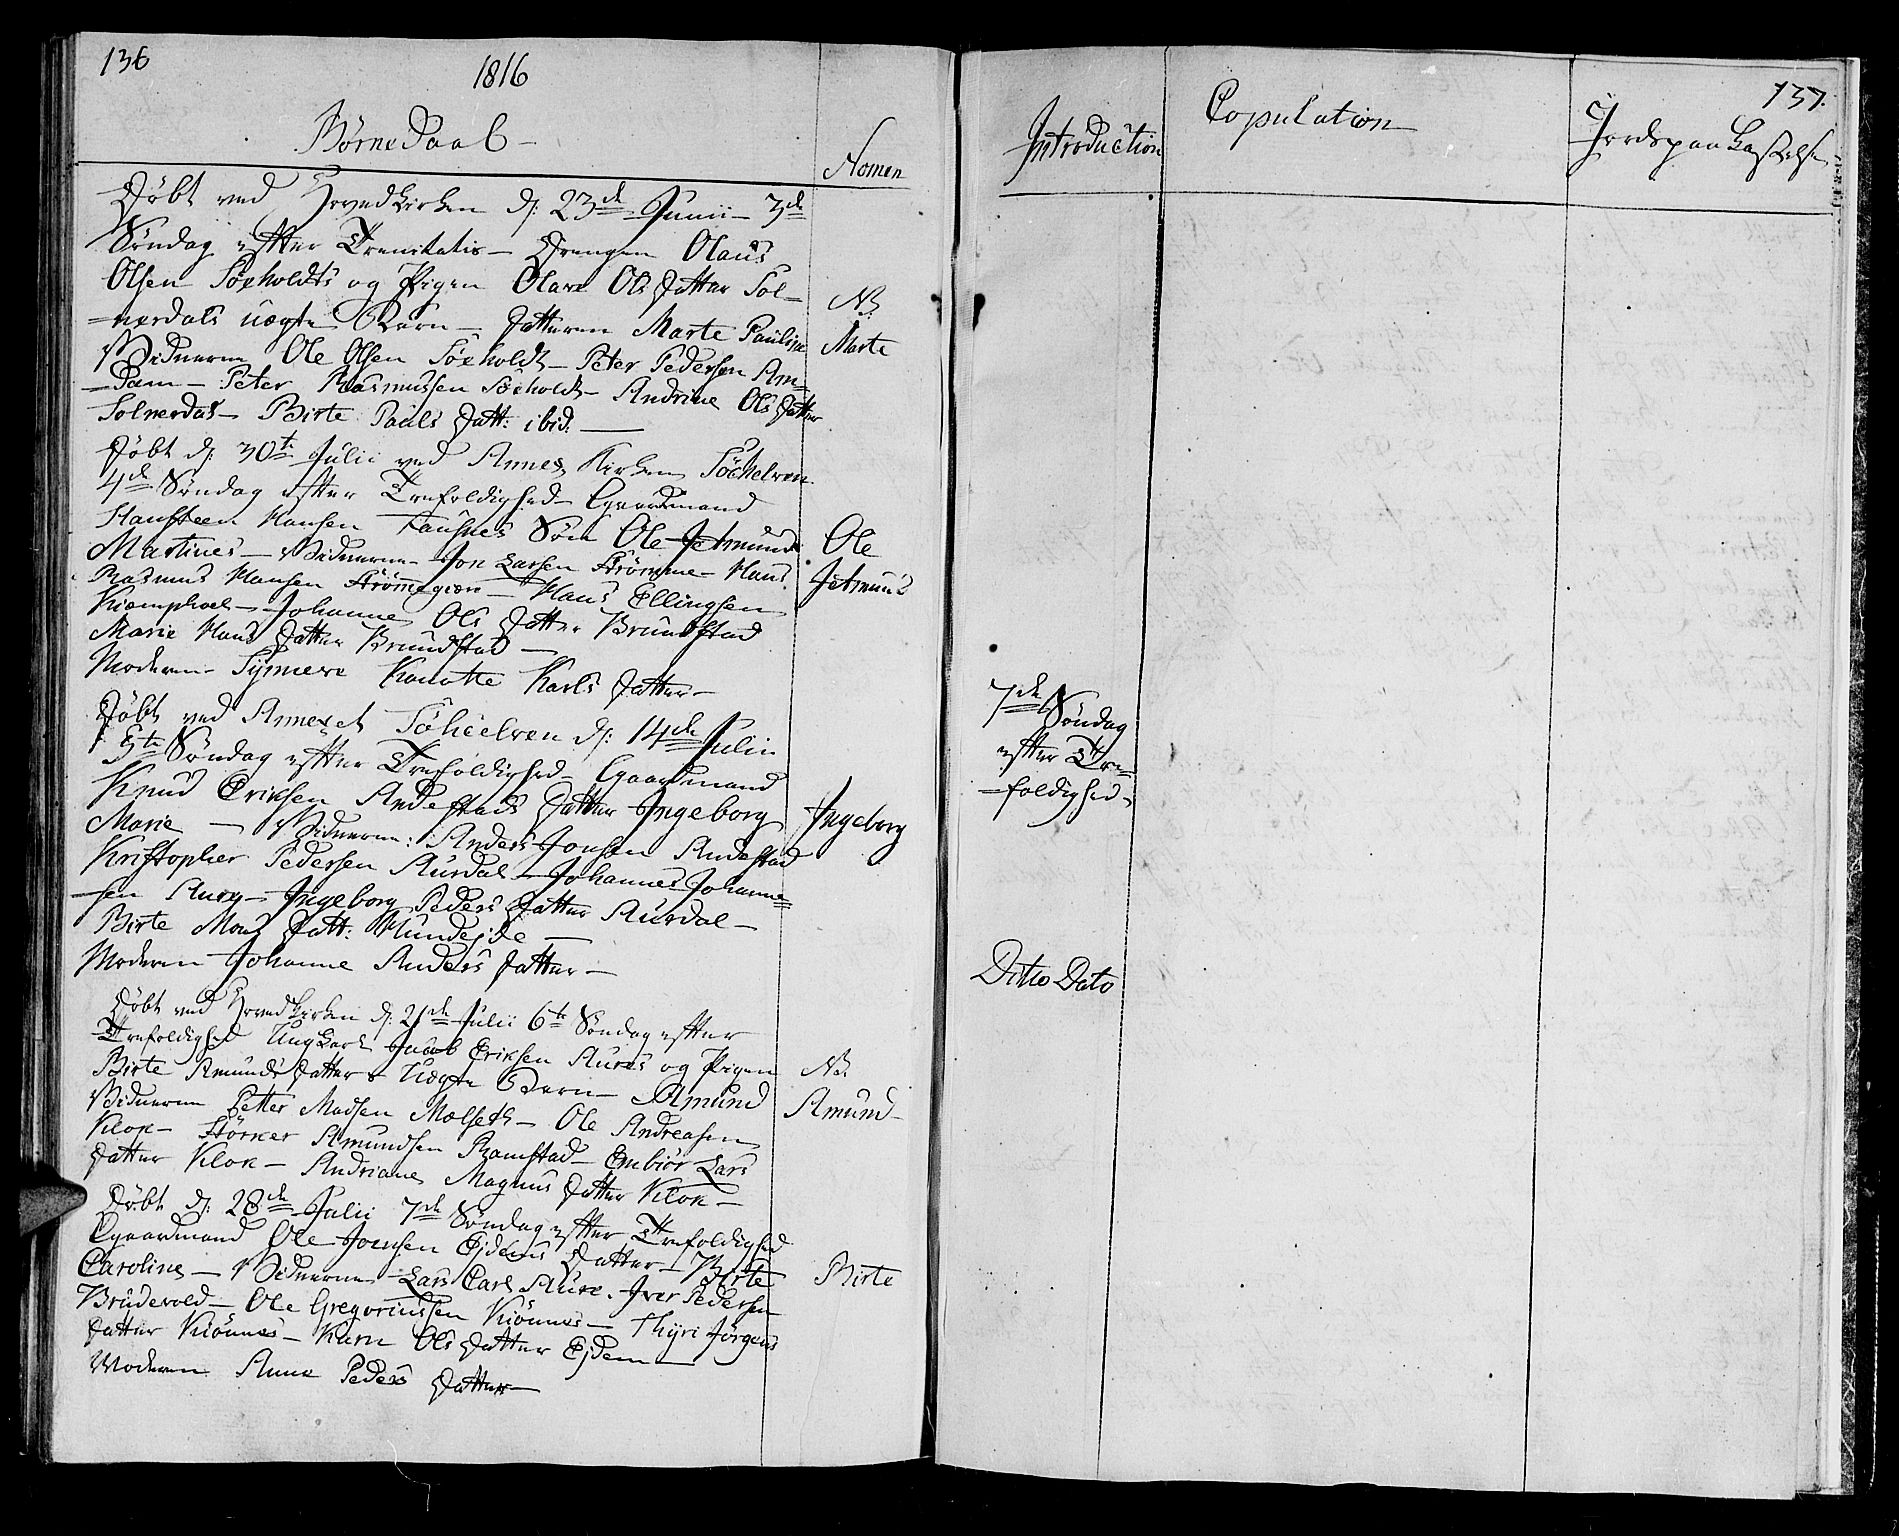 136
1816
Børne Daab
Nomen
Døbt ved Hovedkirken d: 23de Junii - 3de
Søndag efter Trenitatis - Drengen Olaus
Olsen Søeholdts og Pigen Olave Ols Datter Sol-
-nerdals uægte Barn - Datteren Marte Pauline
NB.
Marte
Vidnerne Ole Olsen Søeholdt - Peter Pedersen Am=
=dam - Peter Rasmussen Søeholdt - Andrine Ols Datter
Solnerdal - Birte Pauls Datt: ibid:
Døbt d: 30te Julii ved Annex Kirken Söchelven
4de Søndag efter Trefoldighed - Gaardmand
Hansteen Hansen Fausnes Søn Ole Jetmund
Ole
Jetmund
Martines - Vidnerne - Jon Larsen Strømme - Hans
Rasmus Hansen Strømmegien - Hans Ellingsen
Kiemphoel - Johanne Ols Datter Brundstad
Marie Hans Datter Brundstad -
Moderen - Synneve Karls Datter -
Døbt ved Annexet Söheelven d: 14de Julii
5te Søndag efter Trefoldighed - Gaardmand
Knud Eriksen Andestads Datter Ingeborg
Ingeborg
Marie - Vidnerne: Anders Jonsen Andestad
Kristopher Pedersen Aurdal - Johannes Johanne=
=sen Aure - Ingeborg Peders Datter Aurdal -
Birte Mons Datt: Hundejde
Moderen Johanne Anders Datter -
Døbt ved Hovedkirken d: 21de Julii 6te Søndag efter
Trefoldighed Ungkarl Jacob Eriksen Aures og Pigen
Birte Amunds Datters Uægte Barn - Amund
NB.
Amund -
Vidnerne Petter Madsen Mælseth - Ole Andreasen
Klok - Störker Amundsen Ramstad - Embiör Lars
Datter Klok - Andriane Magnus Datter Klok -
Døbt d: 28de Julii 7de Søndag efter Trefoldighed
Gaardmand Ole Jonsen Ejdems Datter - Birte
Birte
Caroline - Vidnerne Lars Carl Aure. Iver Pedersen
Brudevold - Ole Gregoriussen Kiönnes - Thyri Jörgens
Datter Kiönnes - Karn Ols Datter Ejdem
Moderen Anne Peders Datter -
137.
Introduction
Copulation
Jordspaa Kastelse
7de Søndag
efter Tre=
-foldighed -
Ditto Dato